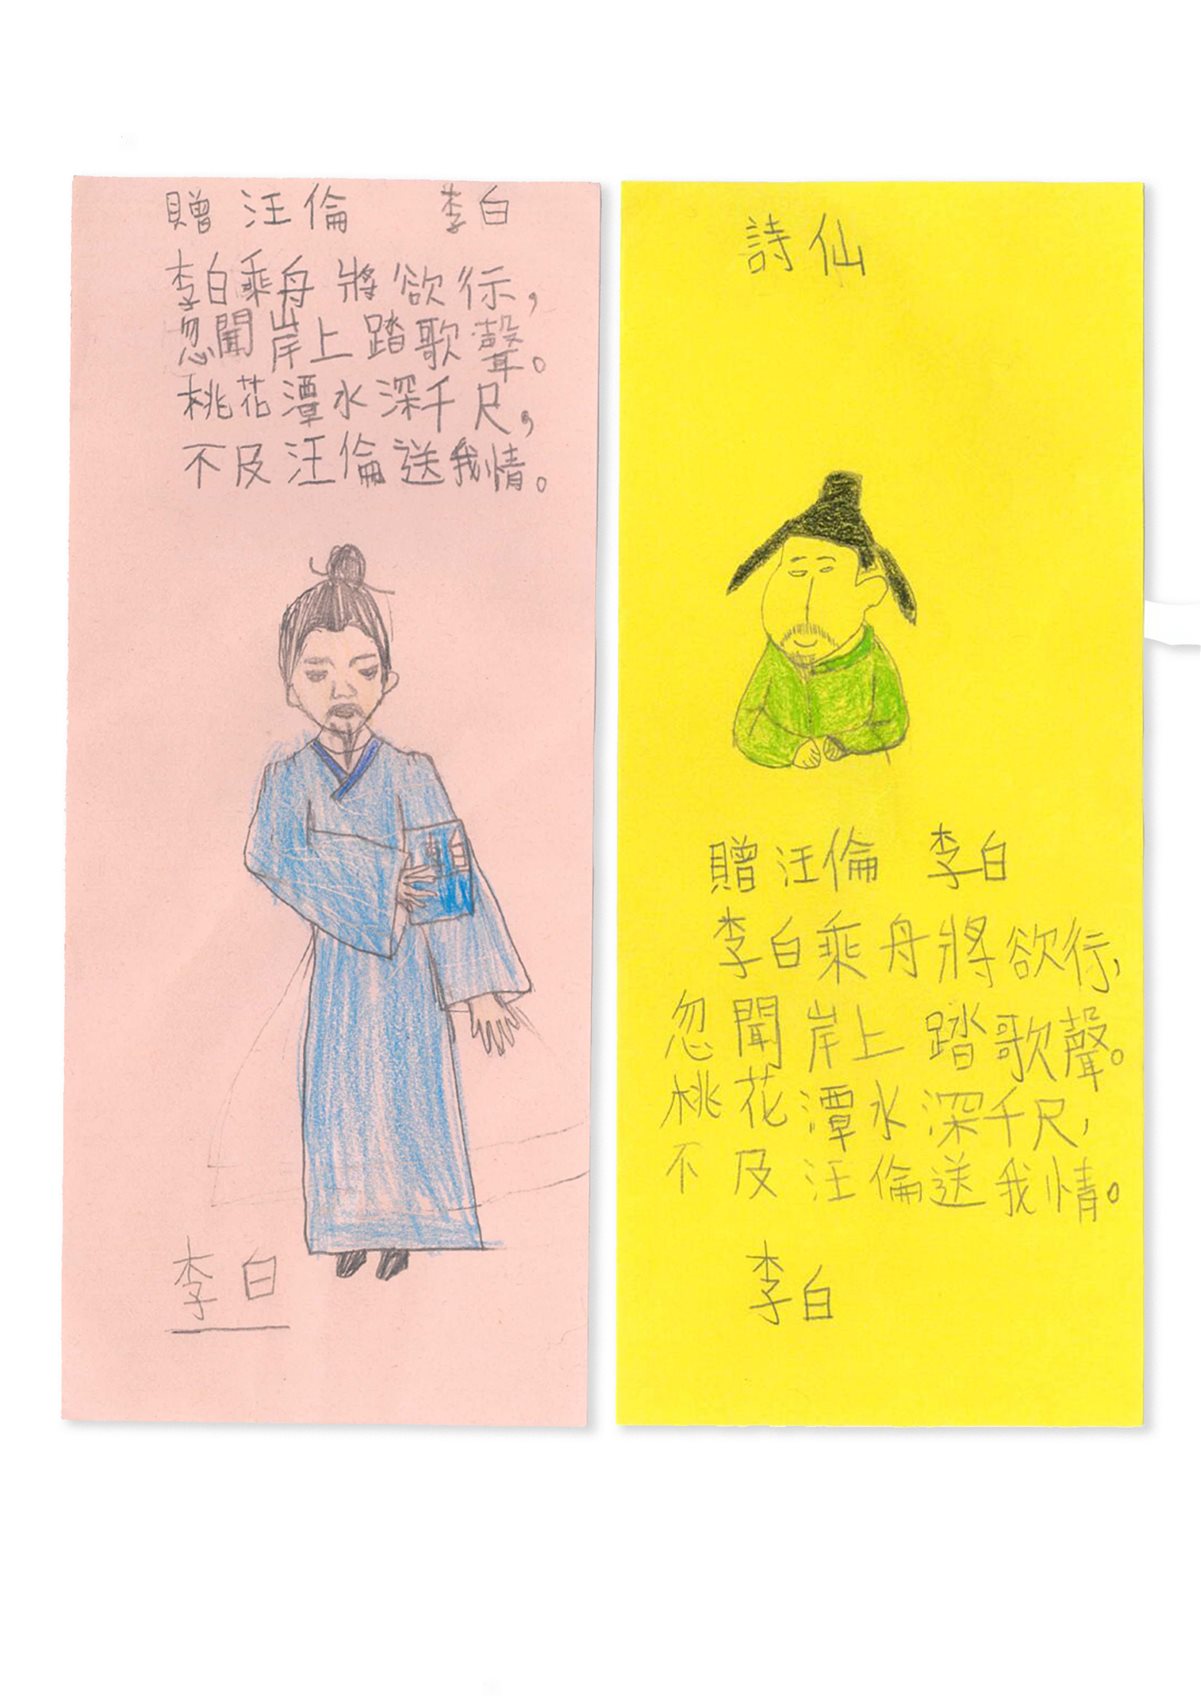 贈汪倫 李白
李白乘舟將欲行，
忽聞岸上踏歌聲。
桃花潭水深千尺，
不及汪倫送我情。
李白
詩仙
贈汪倫 李白
李白乘舟將欲行，
忽聞岸上踏歌聲。
桃花潭水深千尺，
不及汪倫送我情。
李白